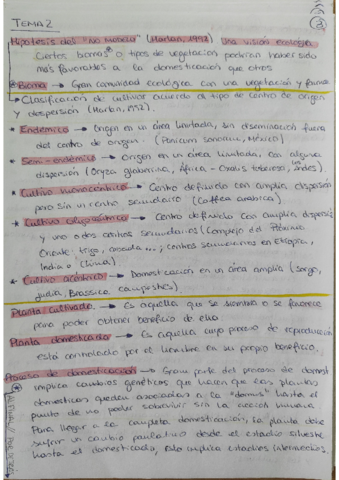 TEMA 2
③
Hipótesis del "No Modelo" (Harlan, 1992) Una visión ecológica
Ciertos biomas* o tipos de vegetación podrían haber sido
más favorables a la domesticación que otros
* Bioma → Gran comunidad ecológica con una vegetación y fauna
→ Clasificación de cultivos acuerdo al tipo de centro de origen
y dispersión (Harlan, 1992).
* Endémico → Origen en un área limitada, sin diseminación fuera
del centro de origen. (Panicum sonorum, México)
* Semi-endémico → Origen en un área limitada, con alguna
dispersión (Oryza glaberrima, África - Oxalis tuberosa, Andes).
* Cultivo monocéntrico → Centro definido con amplia dispersión
pero sin un centro secundario (Coffea arabica)
* Cultivo oligocéntrico → Centro definido con amplia dispersión
y uno o dos centros secundarios (Complejo del Próximo
Oriente: trigo, avena ...; centros secundarios en Etiopía,
India o China)
* Cultivo acéntrico → Domesticación en un área amplia (Sorgo,
judía, Brassica campestris)
Planta cultivada → Es aquella que se siembra o se favorece
para poder obtener beneficio de ella
Planta domesticada → Es aquella cuyo proceso de reproducción
está controlado por el hombre en su propio beneficio.
Proceso de domesticación → Gran parte del proceso de domest
implica cambios genéticos que hacen que las plantas
domésticas queden asociadas a la "domus" hasta el
punto de no poder sobrevivir sin la acción humana
Para llegar a la completa domesticación, la planta debe
sufrir un cambio paulatino desde el estadio silvestre
hasta el domesticado, ello implica estadios intermedios.